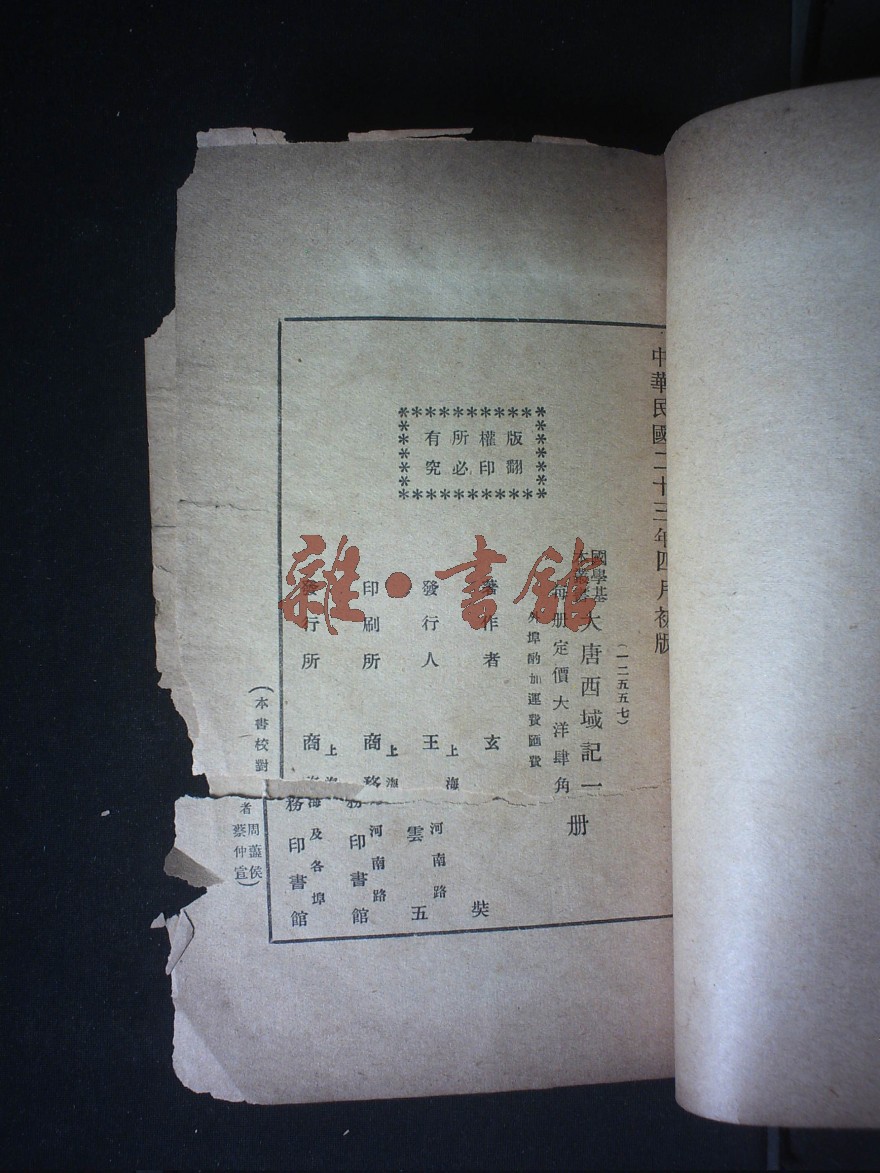 中華民國二十三年四月初版
(一二五五七)
國學基本叢書 大唐西域記一册
每册定價大洋肆角
外埠酌加運費匯費
著作者 玄奘
發行人 王雲五
上海河南路
印刷所 商務印書館
上海河南路
發行所 商務印書館
上海及各埠
版權所有
翻印必究
(本書校對者 周蓋侯 蔡仲宣)
雜·書館